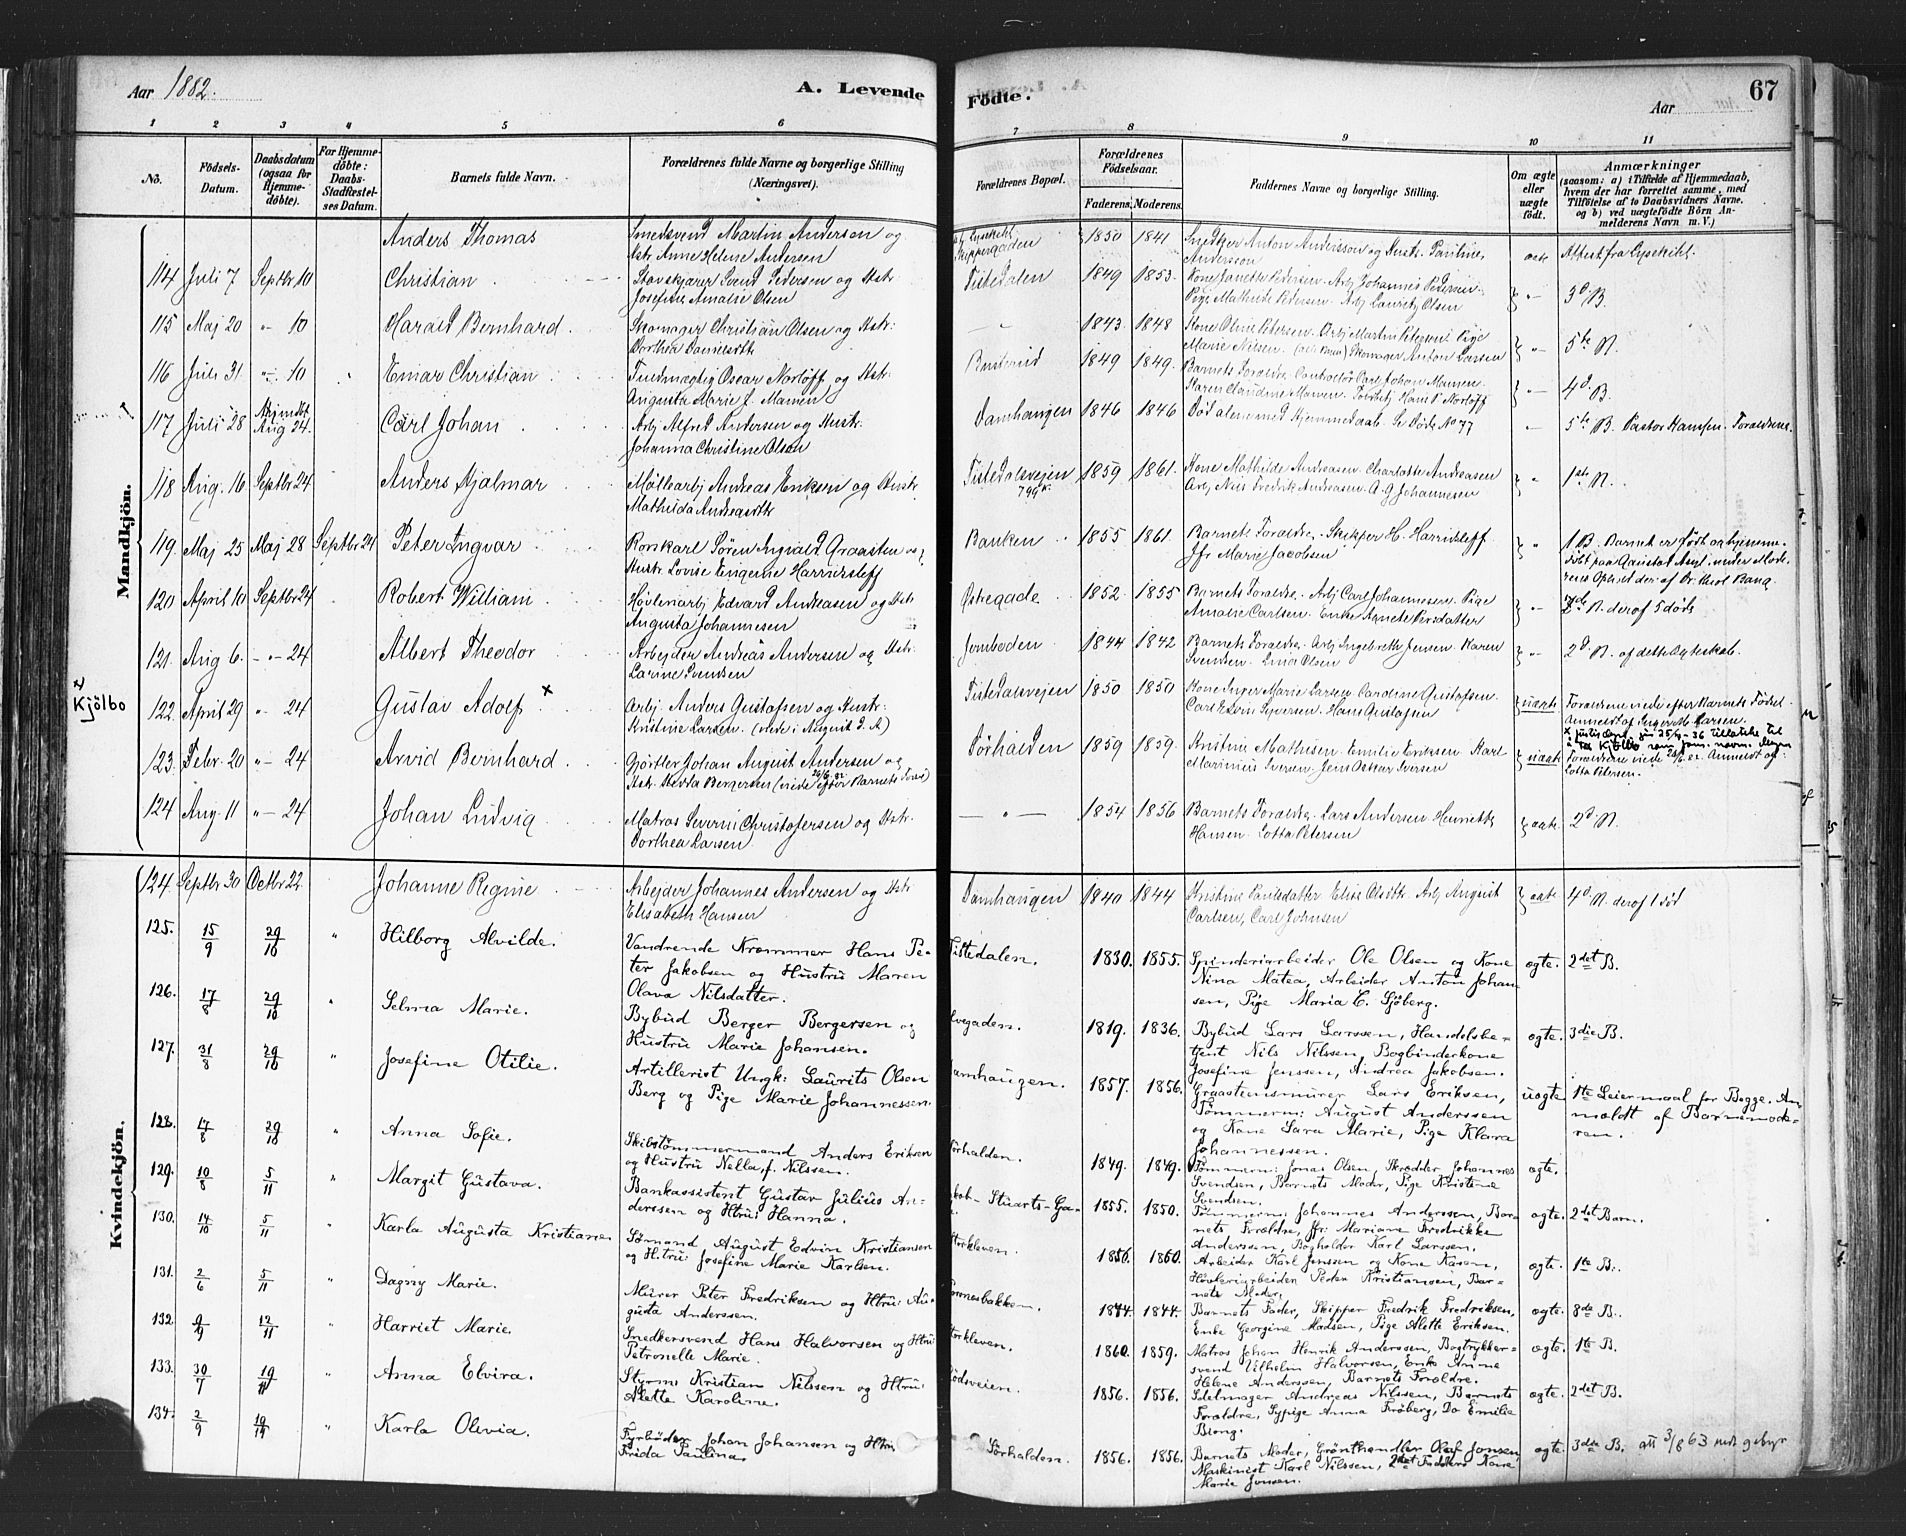 Aar 1882.
A. Levende
Födte.
Aar
67
1 2 3 4 5 6 7 8 9 10 11
No.
Födsels-Datum.
Daabsdatum (ogsaa for Hjemme-döbte).
For Hjemme-döbte: Daabs-Stadfæstel-ses Datum.
Barnets fulde Navn.
Forældrenes fulde Navne og borgerlige Stilling (Næringsvei).
Forældrenes Bopæl.
Forældrenes Födselsaar.
Faderens. Moderens.
Faddernes Navne og borgerlige Stilling.
Om ægte eller uægte födt.
Anmærkninger
(saasom: a) i Tilfælde af Hjemmedaab, hvem der har forrettet samme, med Tilföielse af to Daabsvidners Navne. og b) ved uægtefödte Börn An-melderens Navn m. V.)
Mandkjön.
Anders Thomas
Smedsvend Martin Anderson og
Hstr. Anne Helene Andersen
Skippergaden
1850 1841
Snedker Anton Andersson og Hustr. Pauline
Andersson
ægte
Attest fra Lysekihl.
114 Juli 7 Septbr 10 Christian
Svend Pedersen og Hstr:
Josefine Amalie Olsen
Tistedalen
1849 1853
Kone Janette Pedersen. Arbj Johannes Pedersen.
Pige Mathilde Pedersen. Arbj Lauritz Olsen
3d B.
115 Maj 20 " 10 Harald Bernhard
Skomager Christian Olsen og Hstr:
Dorthea Danielsdtr
1843 1848
Kone Oline Petersen. Arbj Martin Petersen. Pige
Marie Nilsen. Skomager Anton Larsen
5te N.
116 Juli 31 " 10 Einar Christian
Fuldmægtig Oscar Norløff og Hstr.
Augusta Marie f. Mamen
1849 1849
Barnets Foraldre. Carl Johan Mamen.
Karen Claudine Mamen. Hans P. Norløff
4d B.
117 Juli 28 Aug 24. Carl Johan
Arbj Alfred Andersen og Hustr.
Johanna Christine Olsen
Damhaugen
1846 1846
Död alene med Hjemmedaab. Se Döde No 77
5te B. Pastor Hansen. Foraldrene.
118 Aug. 16 Septbr 24 Anders Hjalmar
Möllearbj Andreas Eriksen og Hustr
Mathilda Andreasdtr
Tistedalsvejen
1859 1861.
Kone Mathilde Andreasen. Charlotte Andreasen
Arbj Nils Fredrik Andreasen. A. G. Johannesen
1ste N.
119. Maj 25 Maj 28 Septbr 24 Peter Ingvar
Rorskarl Sören Ingvald Graasten og
Hustr. Lovise Eugenie Harridsleff
Banken
1855 1861
Barnets Foraldre. Skipper H. Harridsleff
Jfr. Marie Jacobsen
1 B. Barnet er født og hjemme-
døbt paa Gaustad Asyl under Mode-
rens Ophold der: af Dr. theol Bang.
120 April 10 Septbr 24 Robert William
Høvleriarbj Edvard Andreasen og Hstr
Augusta Johannesen
Østregade
1852 1855
Barnets Foraldre. Arbj Carl Johannesen. Pige
Amalie Carlsen. Enke Agnete Persdatter
N. deraf 5 døde
121. Aug 6. - " - 24 Albert Theodor
Arbejder Andreas Andersen og Hstr.
Larine Svendsen
Jernboden
1844 1842
Barnets Foraldre. Arbj Ingebreth Jensen. Karen
Svendsen. Olsen
2d N. af dette Ægteskab.
x Kjölbo
122. April 29 " 24 Gustav Adolf x
Arbj. Anders Gustafsen og Hustr:
Kristine Larsen. (viede i August d. A)
Tistedalsvejen
1850 1850
Kone Inger Marie Larsen. Caroline Gustafsen.
Carl Edvin Syversen. Hans Gustafsen
uægte
Foraldrene viede efter Barnets Fødsel
Anmeldt af Inger M. Larsen.
x Justisdept. giv 25/9-36 tillatelse til
å ta Kjölbo som fam. navn.
123. Febr. 20 " - 24 Arvid Bernhard
Gjørtler Johan August Andersen og
Hstr. Hedda Bergersen (viede 26/6. 82 efter Barnets Fødsel)
Sörhalden
1859 1859.
Kristine Mathisen. Emilie Eriksen. Karl
Marinius Iversen. Jens Oskar Iversen
uægte
Foraldrene viede 26/6. 82. Anmeldt af
Lotta Petersen.
124 Aug. 11 " - 24 Johan Ludvig
Matros Severin Christofersen og Hstr.
Dorthea Larsen.
- " -
1854 1856
Barnets Foraldre. Lars Andersen. Henriette
Hansen. Lotta Petersen
ægte.
2d N.
Kvindekjön.
124. Septbr 30 Octbr 22 Johanne Regine
Arbejder Johannes Andersen og Hstr
Elisabeth Hansen
Damhaugen
1840 1844
Kristine Paulsdatter Elise Olsdtr. Arbj August
Carlsen, Carl Johnsen
ægte
4d N. deraf 1 död
125. 15/9 29/10 " Hilborg Alvilde.
Vandrende Kræmmer Hans Pe-
ter Jakobsen og Hustru Maren
Olava Nilsdatter.
Tistedalen.
1830. 1855.
Spinderiarbeider Ole Olsen og Kone
Nina Matea, Arbeider Anton Johan-
sen, Pige Maria C. Sjöberg.
ægte. 2det B.
126. 17/8 29/10 " Selma Marie.
Bybud Berger Bergersen og
Hustru Marie Johansen.
1819. 1836.
Bybud Lars Larssen, Handelsbe-
tjent Nils Nilssen, Bogbinderkone
Josefine Jenssen, Andrea Jakobsen.
ægte. 3die B.
127. 31/8 29/10 " Josefine Otilie.
Artillerist Ungk: Laurits Olsen
Berg og Pige Marie Johannessen.
Damhaugen.
1857. 1856.
Graastensmurer Lars Eriksen,
Tömmerm: August Anderssen
og Kone Sara Marie, Pige Klara
Johannessen.
uægte 1ste Leiermaal for Begge. An-
meldt af Barnemode-
ren.
128. 17/8 29/10 " Anna Sofie.
Skibstömmermand Anders Eriksen
og Hustru Nella, f. Nilssen.
Sörhalden.
1849. 1849.
Tömmerm: Jonas Olsen, Skrædder Johannes
Svendsen, Barnets Moder, Pige Kristine
Svendsen.
ægte.
129. 10/8 5/11 " Margit Gustava.
Bankassistent Gustav Julius An-
derssen og Htru: Hanna.
Jakob-Stuarts-Ga-
1855. 1850.
Tömmerm: Johannes Anderssen, Bar-
nets Forældre, Jfr: Mariane Fredrikke
Anderssen, Bogholder Karl Larssen.
ægte. 2det Barn.
130. 14/10 5/11 " Karla Augusta Kristiane
Sömand August Edvin Kristiansen
og Htru: Josefine Marie Karlsen.
Storkleven.
1856. 1860.
Arbeider Karl Jenssen og Kone Kasen,
Hövleriarbeider Peder Kristiansen, Bar-
nets Moder.
ægte. 1ste B.
131. 2/6 5/11 " Dagny Marie.
Murer Peter Fredriksen og Htru: Au-
gusta Anderssen.
1844. 1844.
Barnets Fader, Skipper Fredrik Fredriksen,
Enke Georgine Madsen, Pige Alette Eriksen.
ægte. 8de B.
132. 9/9 12/11 " Harriet Marie
Snedkersvend Hans Halvorsen og Htru:
Petronelle Marie.
Storkleven.
1860. 1859.
Matros Johan Henrik Anderssen, Bogtrykker-
svend Vilhelm Halvorsen, Enke Anne
Helene Anderssen, Barnets Forældre.
ægte. 1ste B.
133. 30/7 19/11 " Anna Elvira.
Styrm: Kristian Nilssen og Htru:
Alette Karoline.
Rödsveien.
1856. 1856.
Seilmager Andreas Nilssen, Barnets
Forældre, Sypige Anna Fröberg, Do Emilie
Biong.
ægte. 2det B.
134. 2/9 19/11 " Karla Olevia.
Fyrböder Johan Johansen og Htru:
Frida Paulina.
Sörhalden.
1856. 1856.
Barnets Moder, Grönthandler Olaf Jonsen,
Maskinist Karl Nilssen, Kone
Marie Jonsen.
ægte 3die B. att 3/8 63 med gebyr